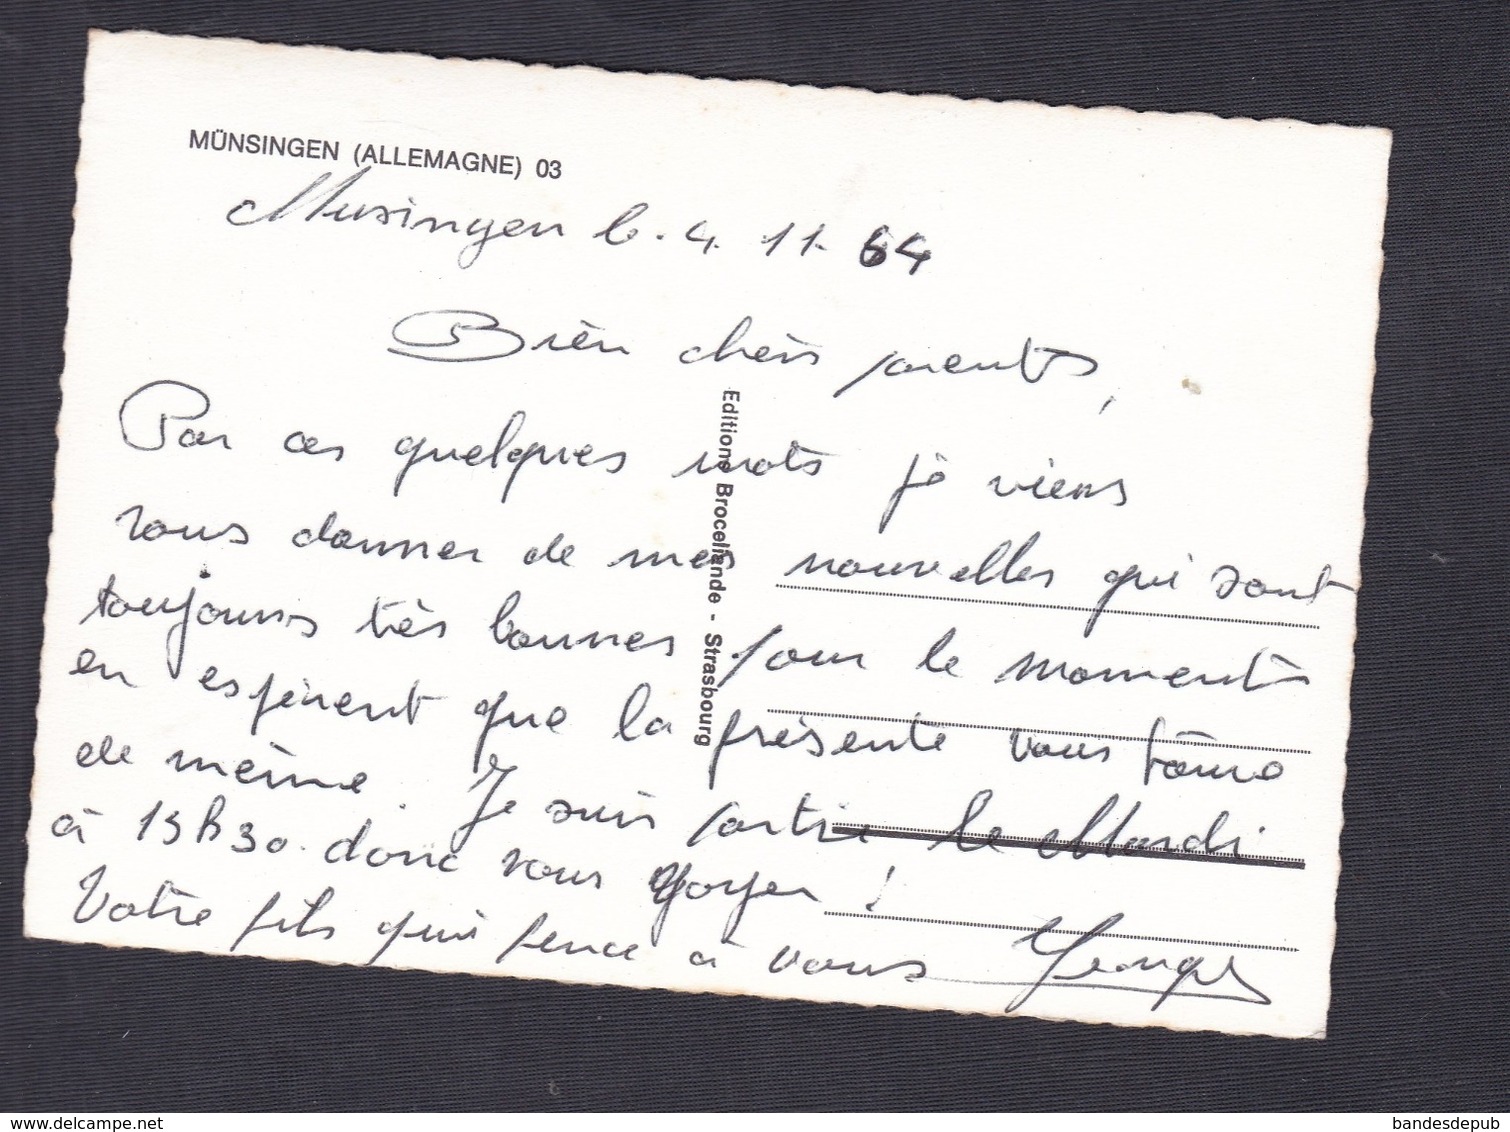 MÜNSINGEN (ALLEMAGNE) 03
Musingen le. 4. 11. 64
Bien chers parents,
Par ces quelques mots je viens
vous donner de mes nouvelles qui sont
toujours très bonnes pour le moments
en espérent que la présente vous
de même. Je suis partie le Mardi
à 13h30. donc vous voyer !
Votre fils qui pence à vous Georges
Editions Broceliande - Strasbourg
delcampe.net
bandesdepub